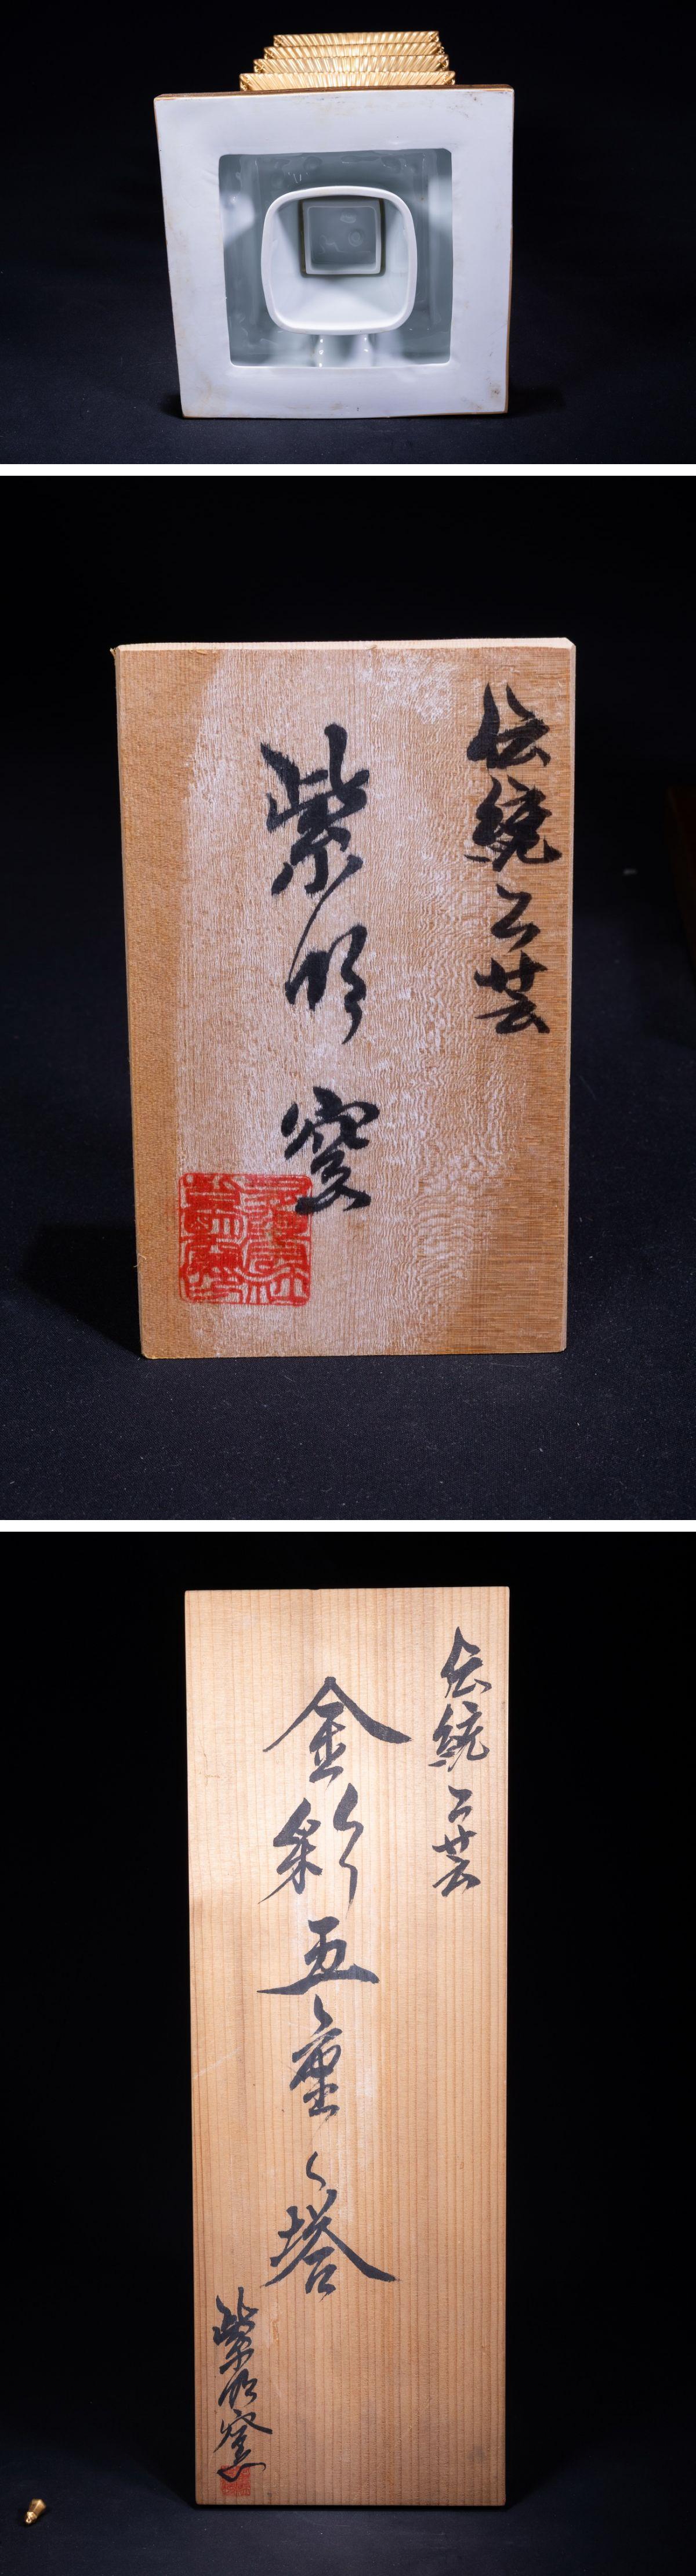 伝統工芸
紫明窯
伝統工芸
金彩五重之塔
紫明窯